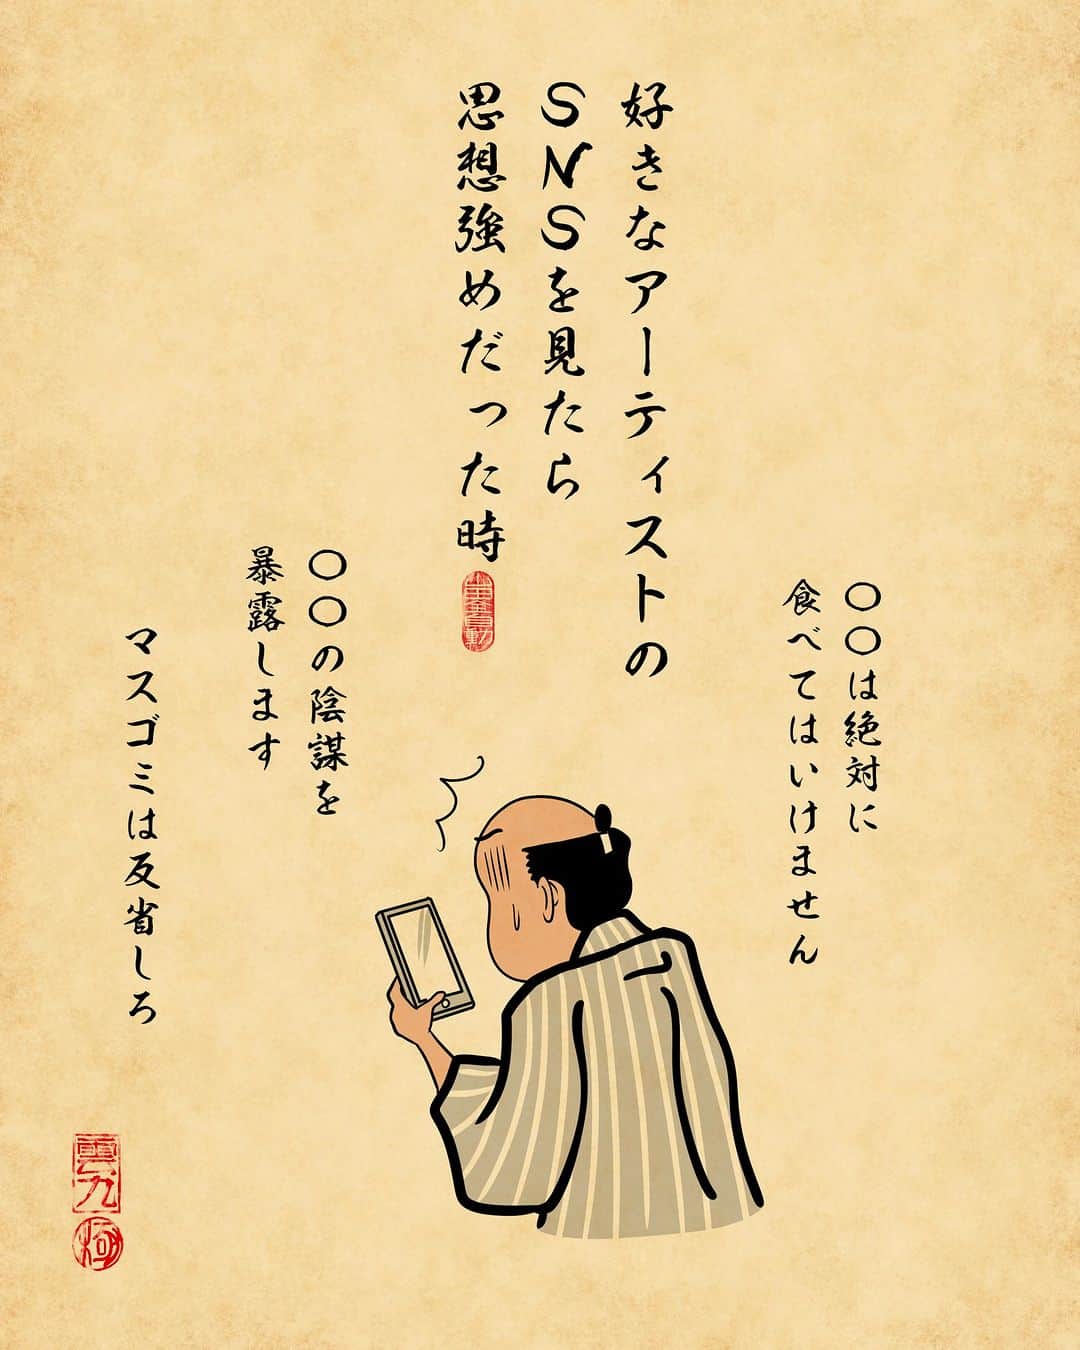 好きなアーティストの
SNSを見たら
思想強めだった時
〇〇は絶対に
食べてはいけません
〇〇の陰謀を
暴露します
マスゴミは反省しろ